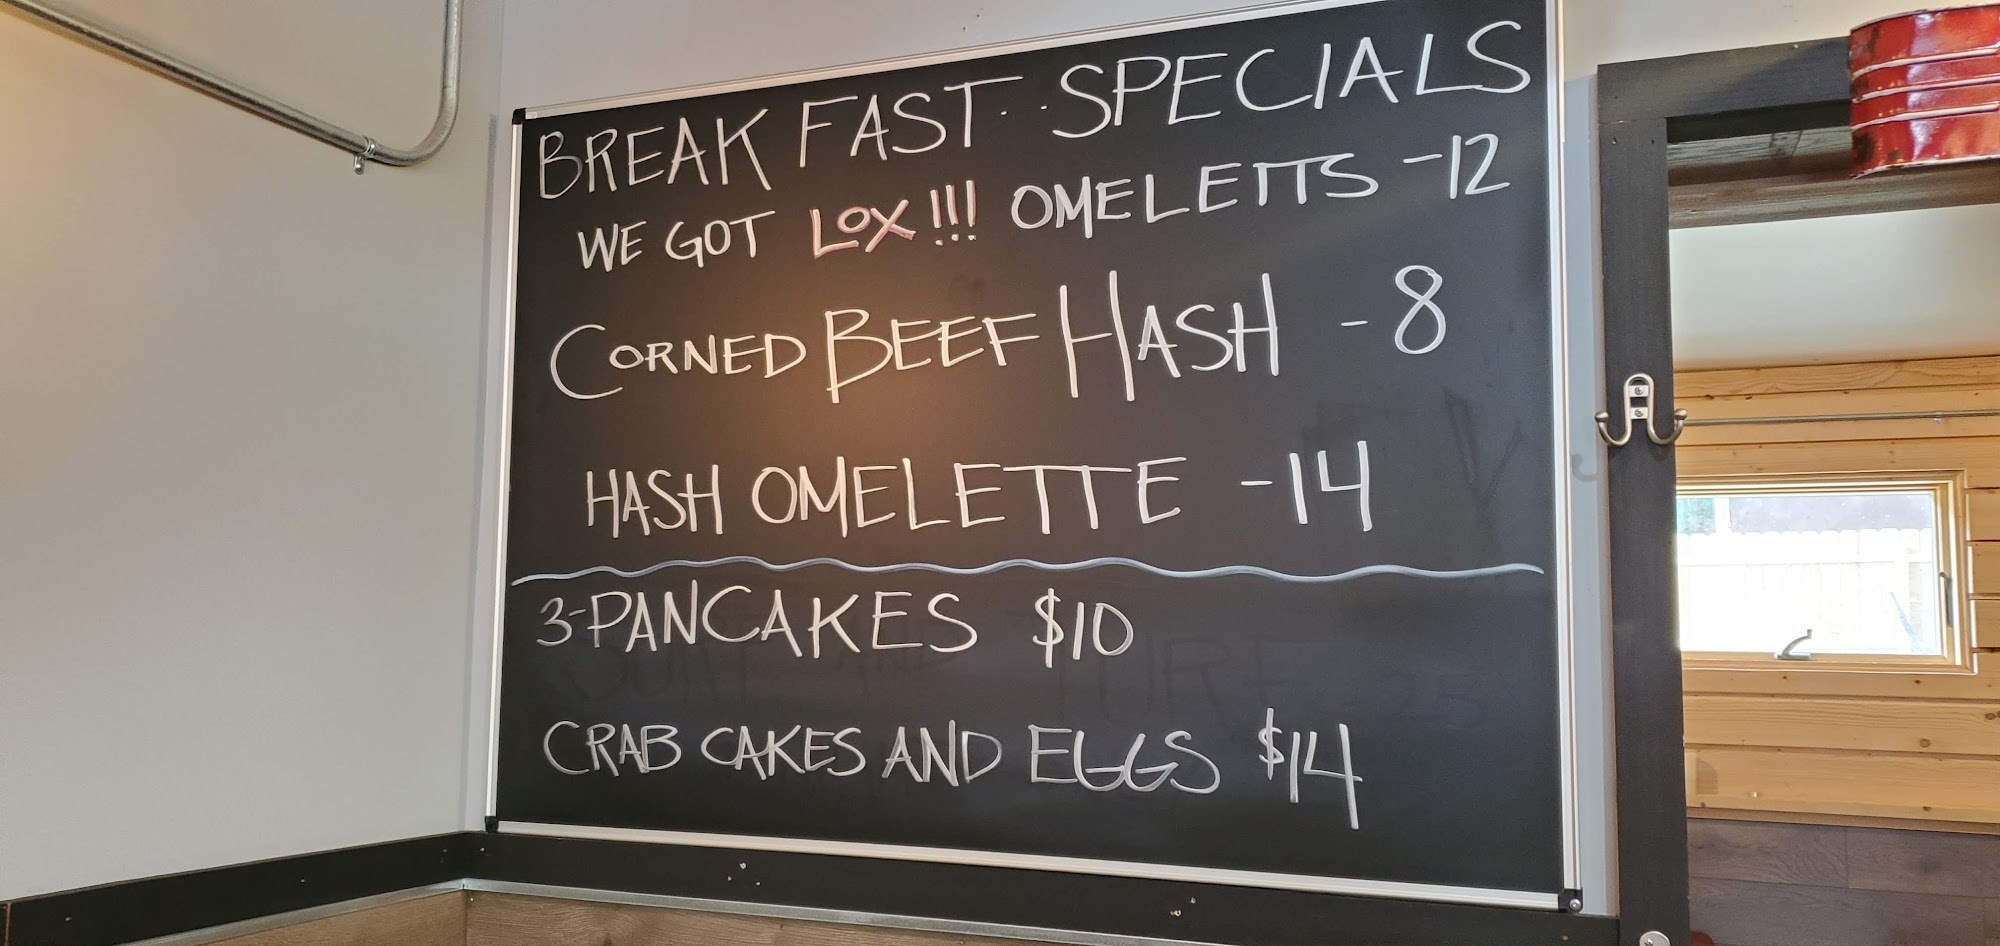 BREAKFAST SPECIALS
WE GOT LOX!!! OMELETTS -12
CORNED BEEF HASH - 8
HASH OMELETTE -14
3-PANCAKES $10
CRAB CAKES AND EGGS $14